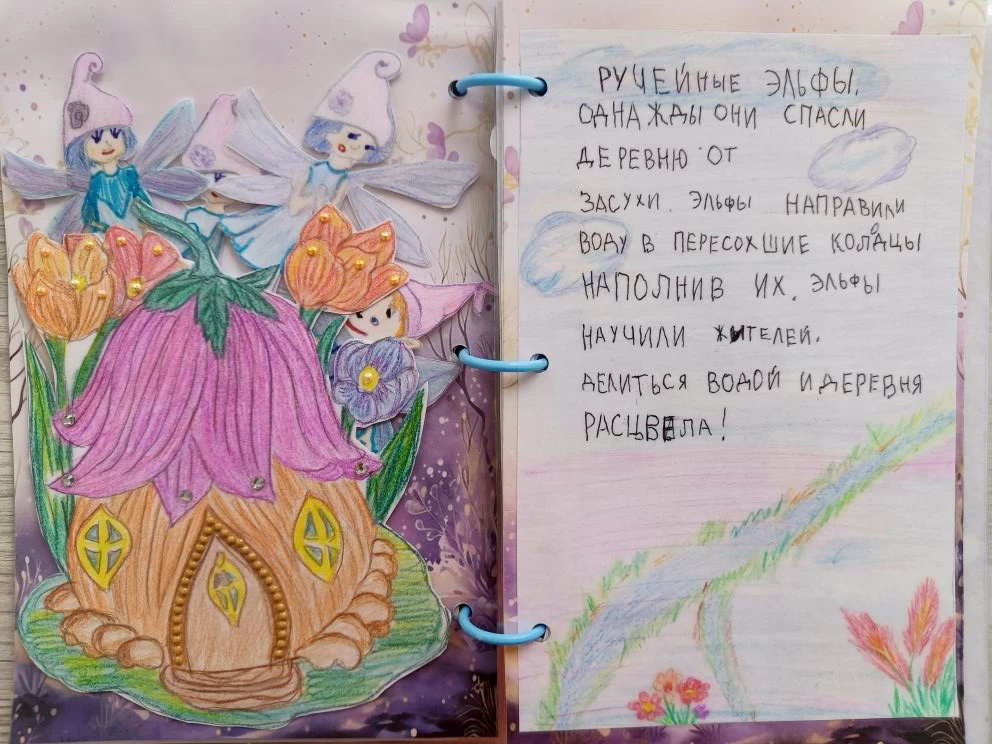 РУЧЕЙНЫЕ ЭЛЬФЫ.
ОДНАЖДЫ ОНИ СПАСЛИ
ДЕРЕВНЮ ОТ
ЗАСУХИ. ЭЛЬФЫ НАПРАВИЛИ
ВОДУ В ПЕРЕСОХШИЕ КОЛОДЦЫ
НАПОЛНИВ ИХ. ЭЛЬФЫ
НАУЧИЛИ ЖИТЕЛЕЙ.
ДЕЛИТЬСЯ ВОДОЙ И ДЕРЕВНЯ
РАСЦВЕЛА!